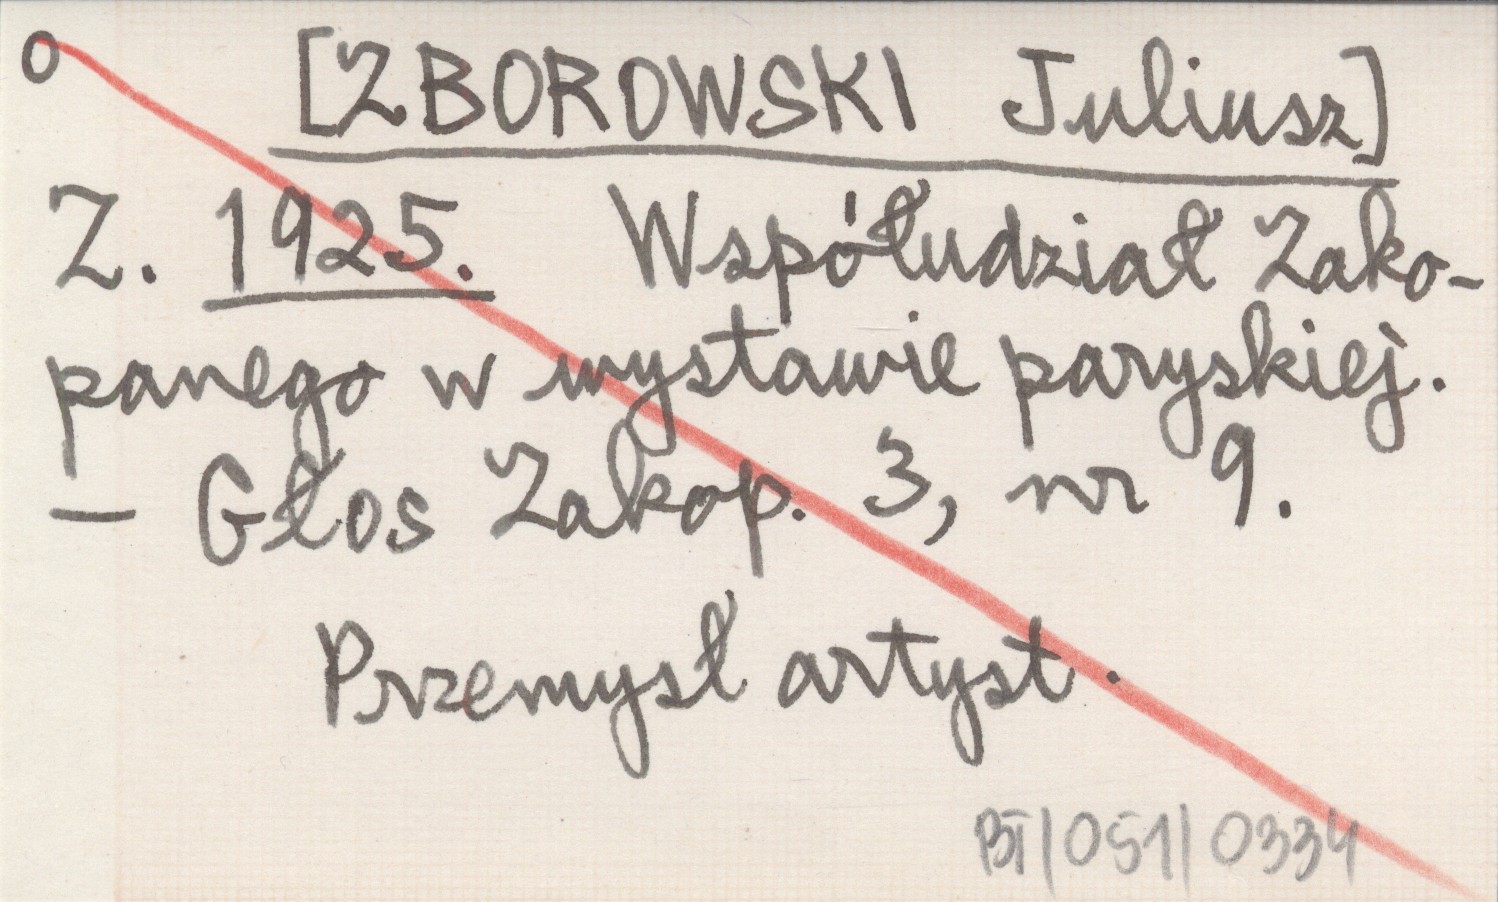 o [ZBOROWSKI Juliusz]
Z. 1925. Współudział Zako-
panego w wystawie paryskiej.
— Głos Zakop. 3, nr 9.
Przemysł artyst.
BT/051/0334